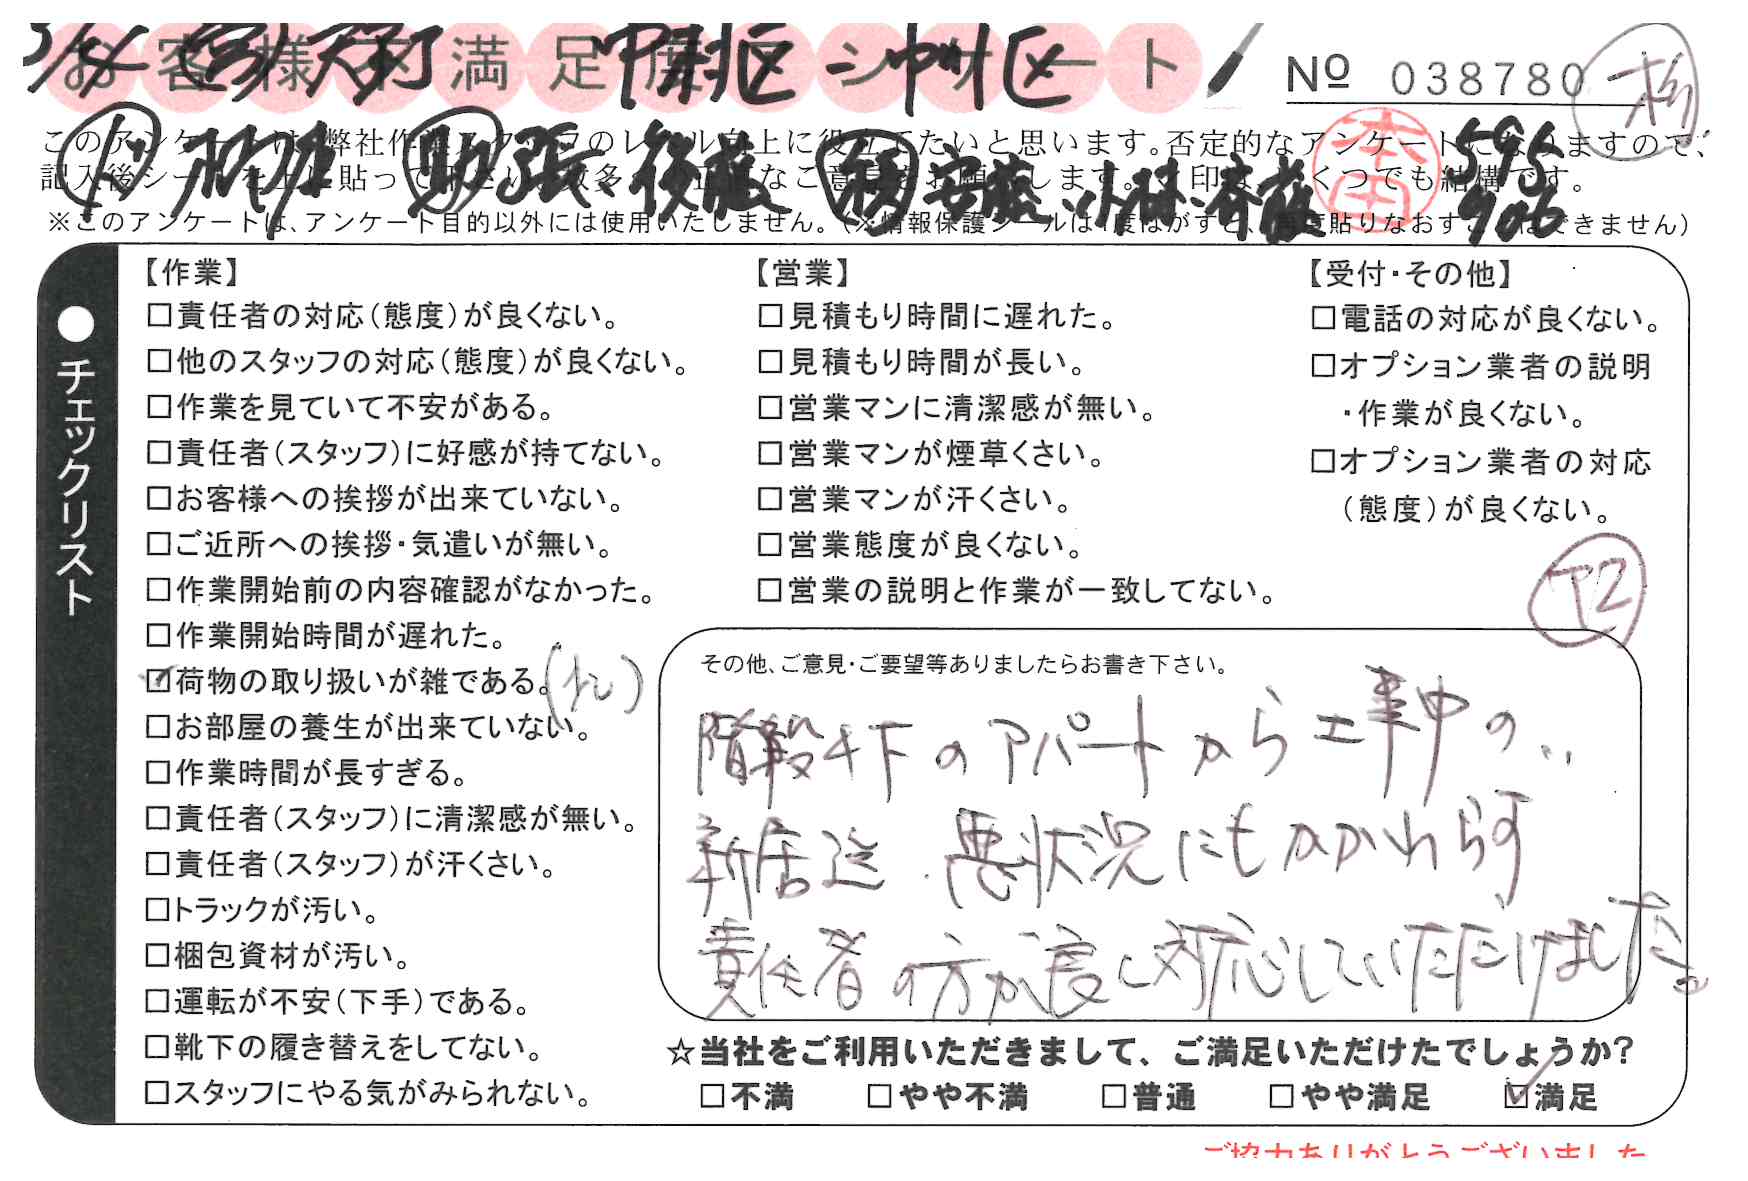 お客様不満足度アンケート
中川区
№ 038780
このアンケートは、弊社作業スタッフのレベル向上に役立てたいと思います。否定的なアンケートになりますので、
記入後シールを上に貼って下さい。数多くの正直なご意見をお願いします。✓印は、いくつでも結構です。
※このアンケートは、アンケート目的以外には使用いたしません。(※情報保護シールは1度はがすと、再度貼りなおすことはできません)
本田
●チェックリスト
【作業】
□責任者の対応(態度)が良くない。
□他のスタッフの対応(態度)が良くない。
□作業を見ていて不安がある。
□責任者(スタッフ)に好感が持てない。
□お客様への挨拶が出来ていない。
□ご近所への挨拶・気遣いが無い。
□作業開始前の内容確認がなかった。
□作業開始時間が遅れた。
☑荷物の取り扱いが雑である。
□お部屋の養生が出来ていない。
□作業時間が長すぎる。
□責任者(スタッフ)に清潔感が無い。
□責任者(スタッフ)が汗くさい。
□トラックが汚い。
□梱包資材が汚い。
□運転が不安(下手)である。
□靴下の履き替えをしてない。
□スタッフにやる気がみられない。
【営業】
□見積もり時間に遅れた。
□見積もり時間が長い。
□営業マンに清潔感が無い。
□営業マンが煙草くさい。
□営業マンが汗くさい。
□営業態度が良くない。
□営業の説明と作業が一致してない。
【受付・その他】
□電話の対応が良くない。
□オプション業者の説明
・作業が良くない。
□オプション業者の対応
(態度)が良くない。
その他、ご意見・ご要望等ありましたらお書き下さい。
階段4下のアパートから工事中の..
新居迄 悪状況にもかかわらず
責任者の方が良く対応していただけました。
☆当社をご利用いただきまして、ご満足いただけたでしょうか?
□不満 □やや不満 □普通 □やや満足 ☑満足
ご協力ありがとうございました